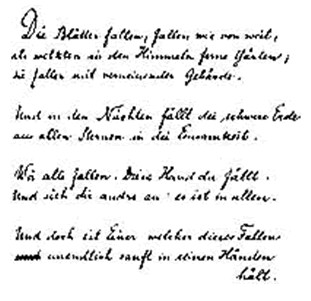 Die Blätter fallen, fallen wie von weit,
als welkten in den Himmeln ferne Gärten;
sie fallen mit verneinender Gebärde.
Und in den Nächten fällt die schwere Erde
aus allen Sternen in die Einsamkeit.
Wir alle fallen. Diese Hand da fällt.
Und sieh dir andre an: es ist in allen.
Und doch ist Einer welcher dieses Fallen
unendlich sanft in seinen Händen
hält.